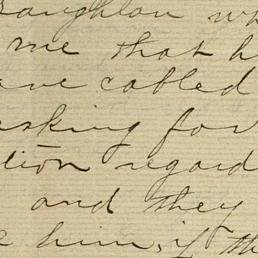 aughton wh
me that h
ave cabled
asking for
tion regard
and they
him, if th